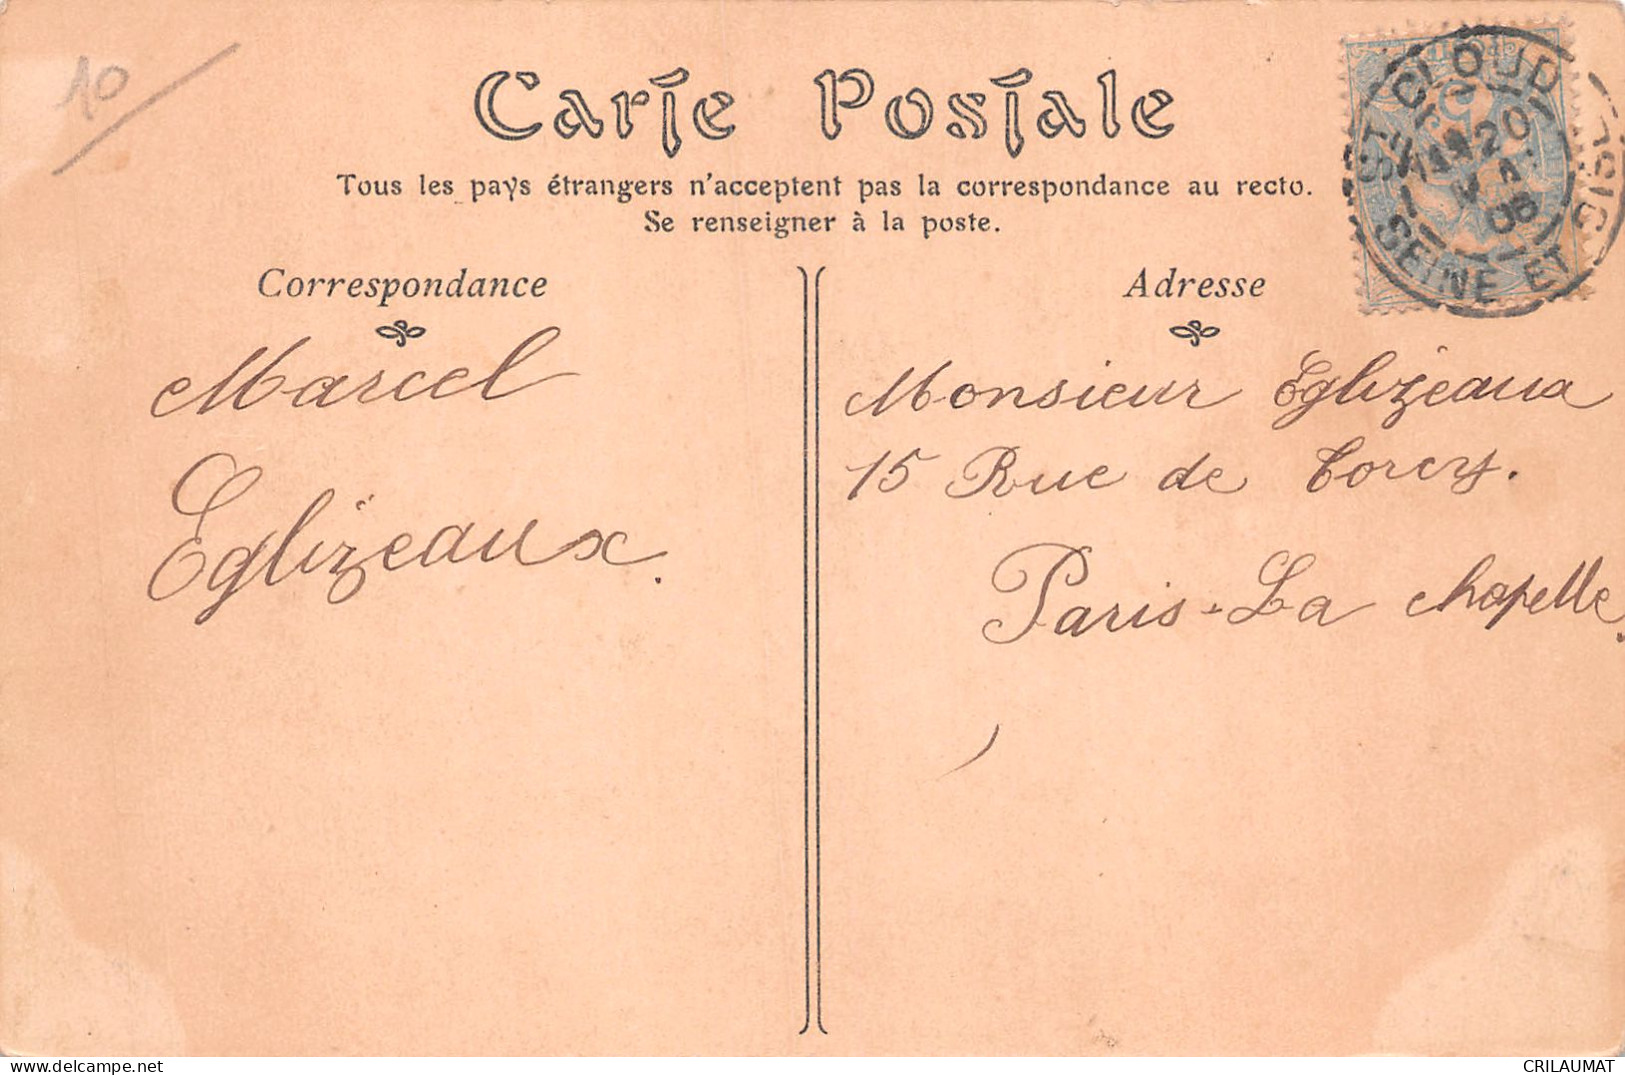 10
Carte Postale
Tous les pays étrangers n'acceptent pas la correspondance au recto.
Se renseigner à la poste.
Correspondance
Adresse
ST CLOUD
SEINE ET OISE
20
06
Marcel
Eglizeaux.
Monsieur Eglizeaux
15 Rue de Torcy.
Paris-La Chapelle.
delcampe.net
CRILAUMAT